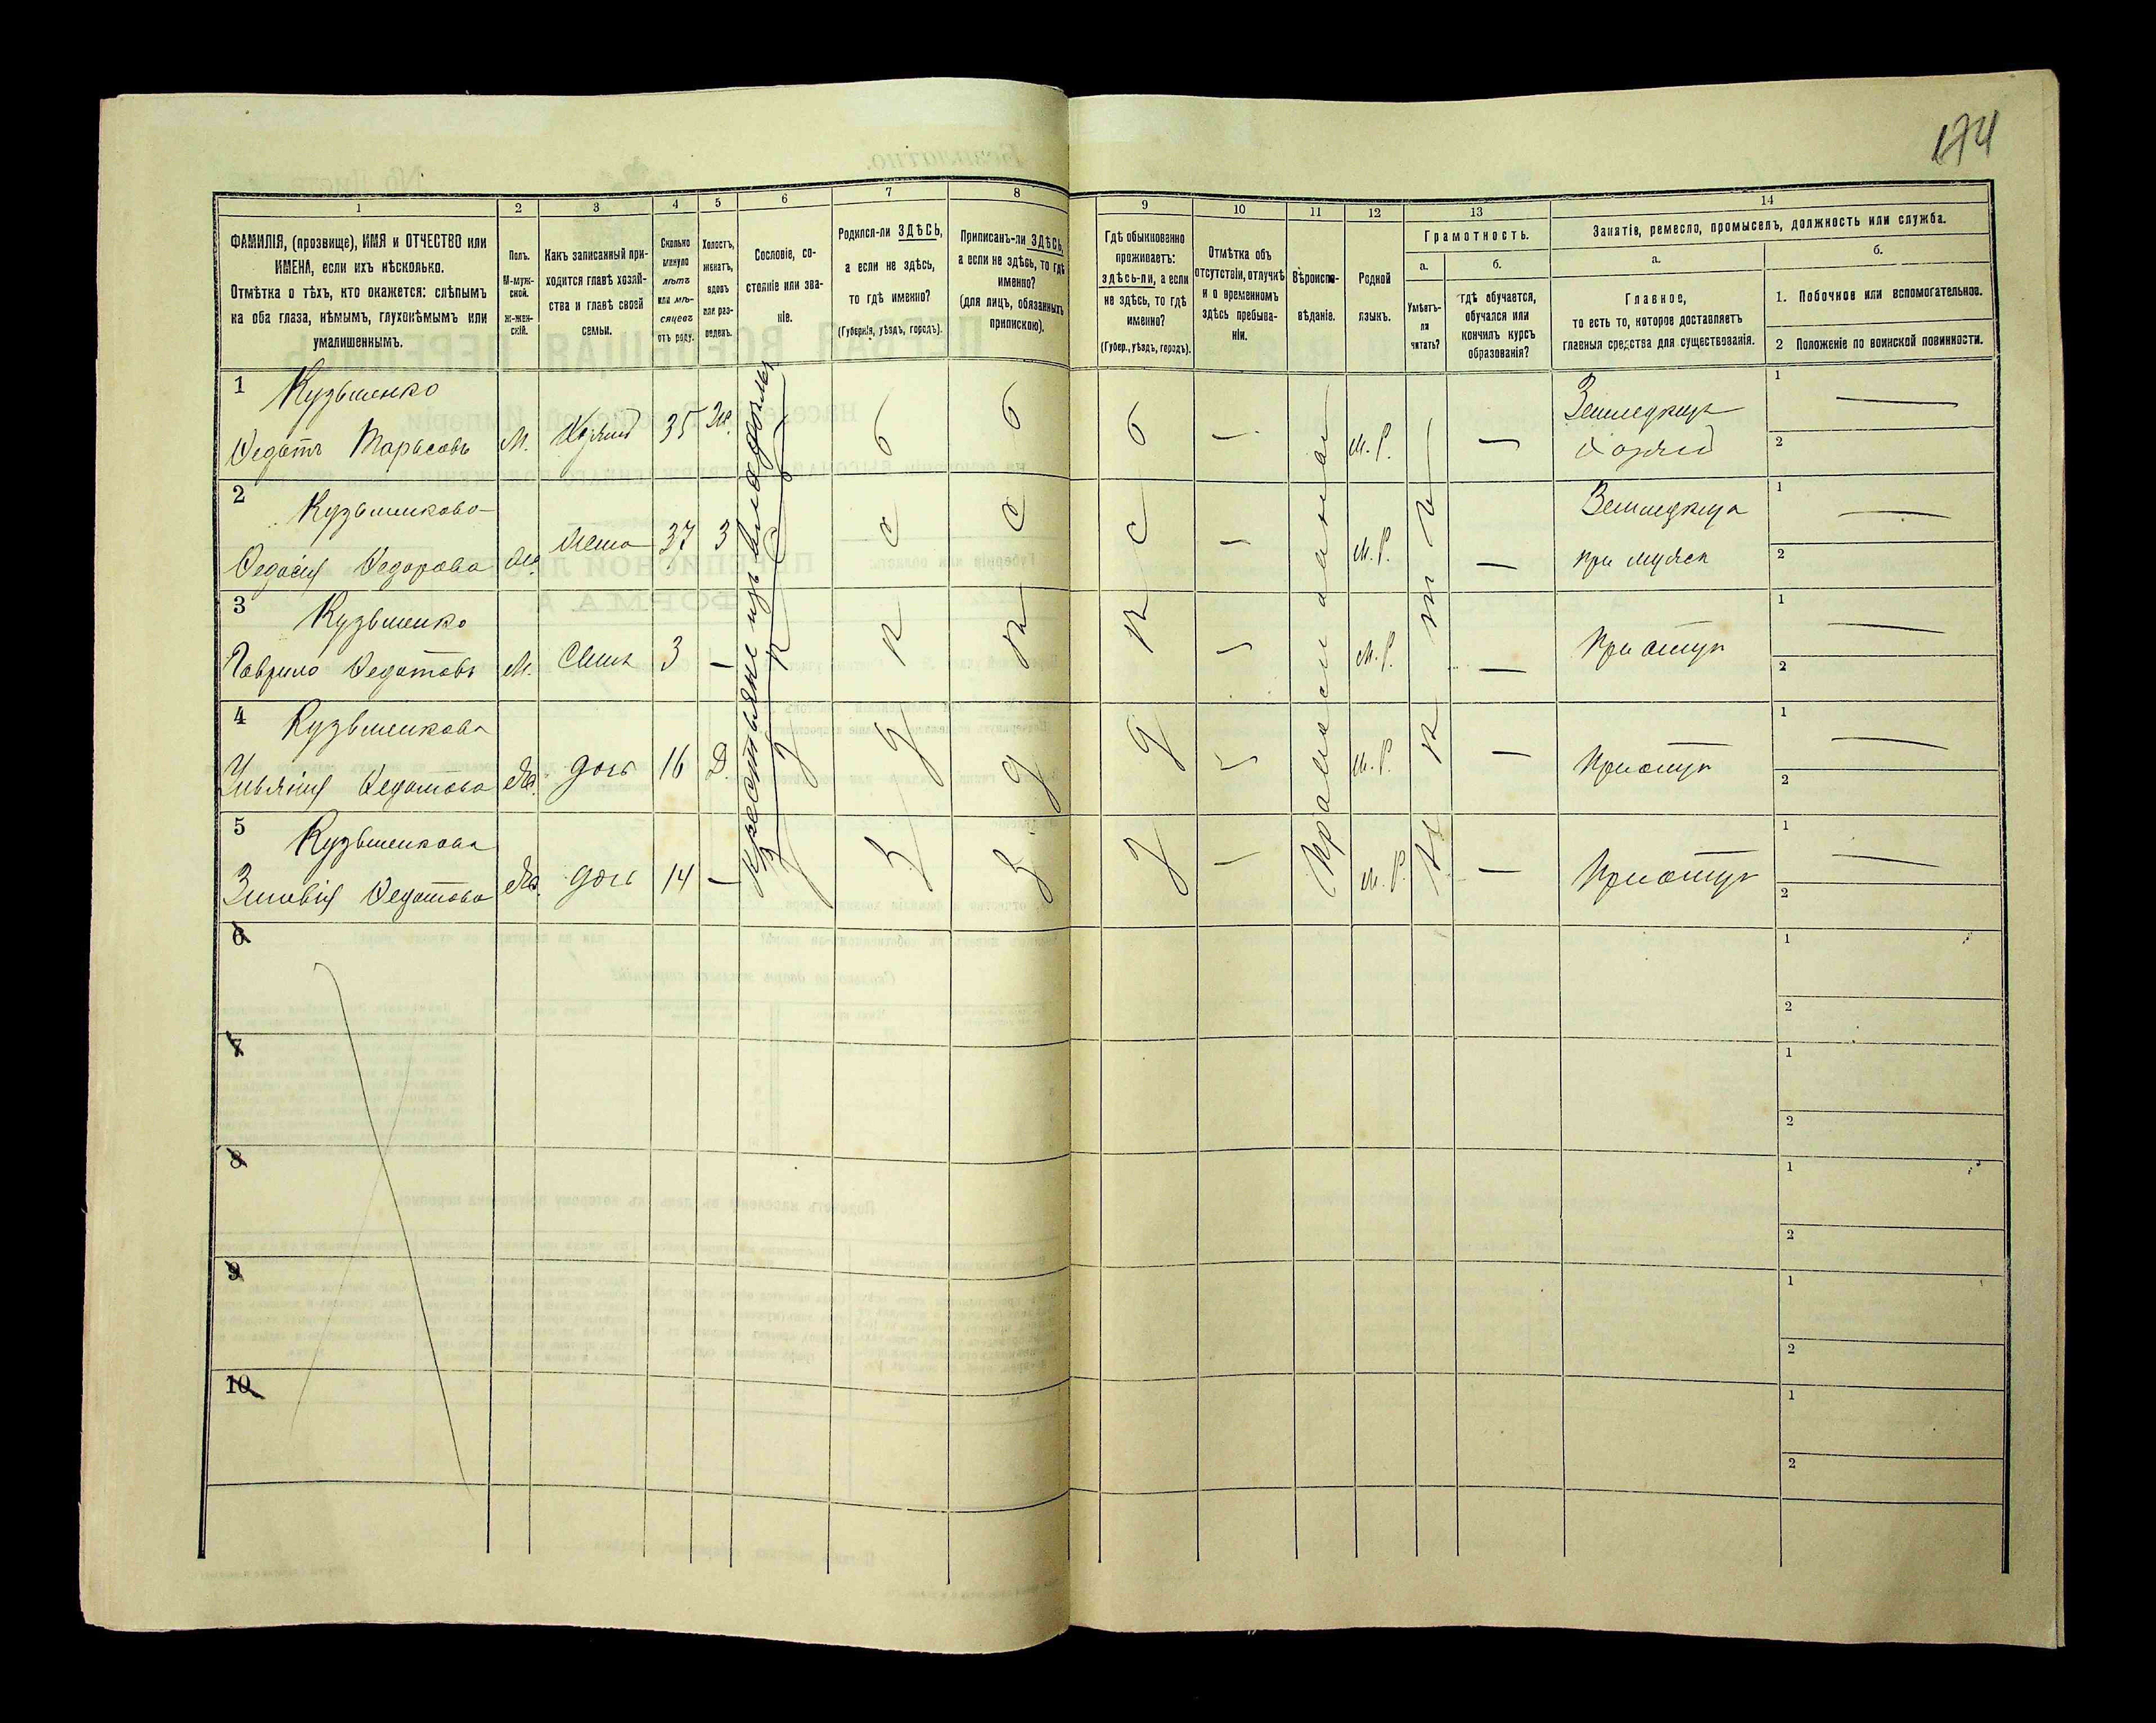 174
1 2 3 4 5 6 7 8 9 10 11 12 13 14
ФАМИЛІЯ, (прозвище), ИМЯ и ОТЧЕСТВО или ИМЕНА, если ихъ нѣсколько.
Отмѣтка о тѣхъ, кто окажется: слѣпымъ на оба глаза, нѣмымъ, глухонѣмымъ или умалишеннымъ.
Полъ. М-мужской. Ж-женскій.
Какъ записанный приходится главѣ хозяйства и главѣ своей семьи.
Сколько минуло лѣтъ или мѣсяцевъ отъ роду.
Холостъ, женатъ, вдовъ или разведенъ.
Сословіе, состояніе или званіе.
Родился-ли ЗДѢСЬ, а если не здѣсь, то гдѣ именно?
(Губернія, уѣздъ, городъ).
Приписанъ-ли ЗДѢСЬ, а если не здѣсь, то гдѣ именно?
(для лицъ, обязанныхъ припискою).
Гдѣ обыкновенно проживаетъ: здѣсь-ли, а если не здѣсь, то гдѣ именно?
(Губер., уѣздъ, городъ).
Отмѣтка объ отсутствіи, отлучкѣ и о временномъ здѣсь пребываніи.
Вѣроисповѣданіе.
Родной языкъ.
Грамотность.
а. Умѣетъ-ли читать?
б. гдѣ обучается, обучался или кончилъ курсъ образованія?
Занятіе, ремесло, промыселъ, должность или служба.
а. Главное, то есть то, которое доставляетъ главныя средства для существованія.
б.
1. Побочное или вспомогательное.
2 Положеніе по воинской повинности.
Крестьяне изъ владѣльч
здѣсь
здѣсь
здѣсь
здѣсь
Православная
Нѣтъ
1 Кузьменко
Федотъ Тарасовъ М. Хозяинъ 35 Ж. — М.Р. —
Земледѣлецъ
Хозяинъ
1 —
2
2 Кузьменкова
Федосія Федорова Ж. Жена 37 З — М.Р. —
Земледѣлица
при мужѣ
1 —
2
3 Кузьменко
Гаврило Федотовъ М. Сынъ 3 — — М.Р. —
При отцѣ
1 —
2
4 Кузьменкова
Ульянія Федотова Ж. дочь 16 Д. — М.Р. —
При отцѣ
1 —
2
5 Кузьменкова
Зиновія Федотова Ж. дочь 14 — — М.Р. —
При отцѣ
1 —
2
6 1
2
7 1
2
8 1
2
9 1
2
10 1
2